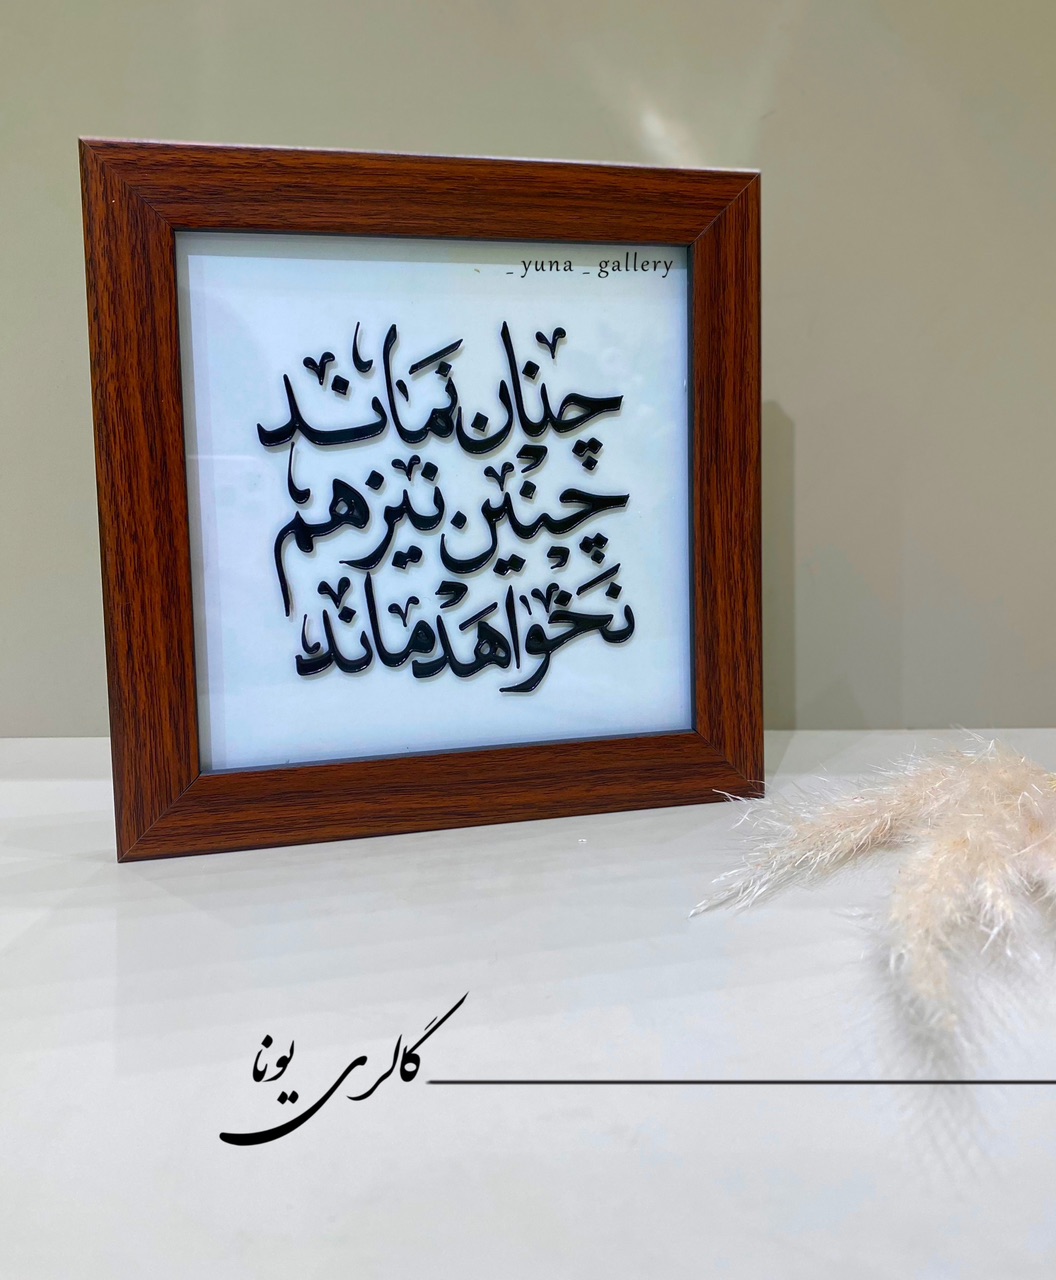 _ yuna _ gallery
چنان نماند
چنین نیز هم
نخواهد ماند
گالری یونا